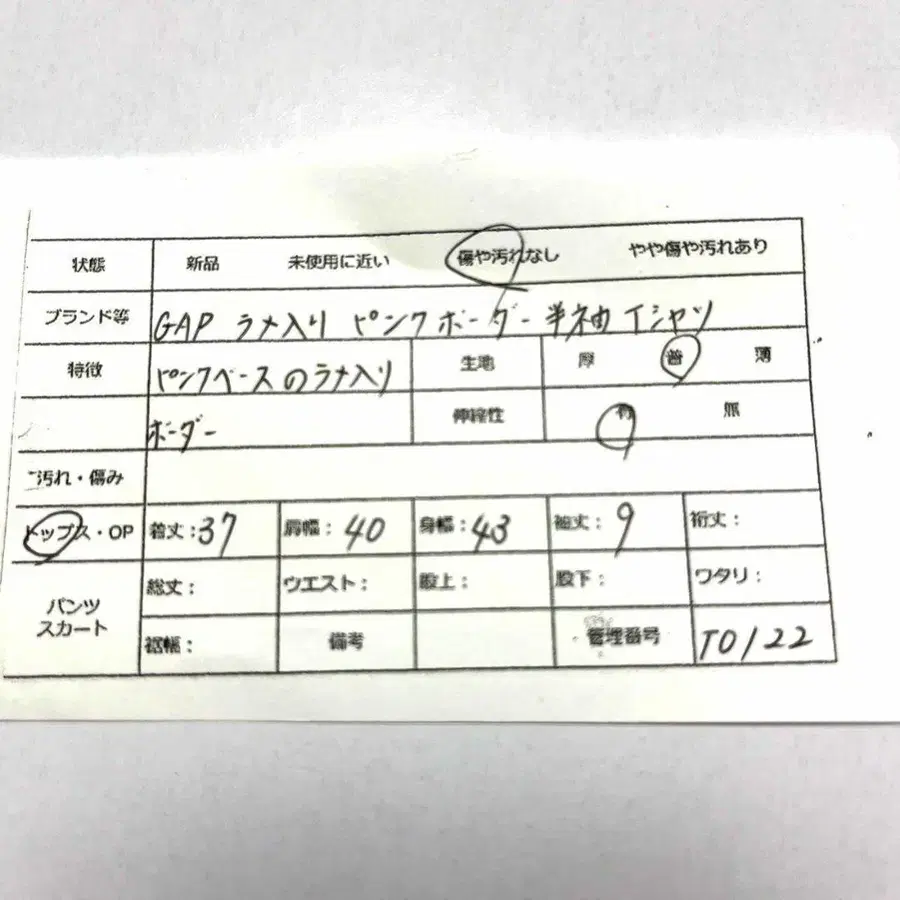 状態 新品 未使用に近い 傷や汚れなし やや傷や汚れあり
ブランド等 GAP ラメ入り ピンクボーダー半袖Tシャツ
特徴 ピンクベースのラメ入り 生地 厚 普 薄
ボーダー 伸縮性 有 無
汚れ・傷み
トップス・OP 着丈:37 肩幅:40 身幅:43 袖丈:9 裄丈:
パンツ 総丈: ウエスト: 股上: 股下: ワタリ:
スカート 裾幅: 備考 管理番号 T0122